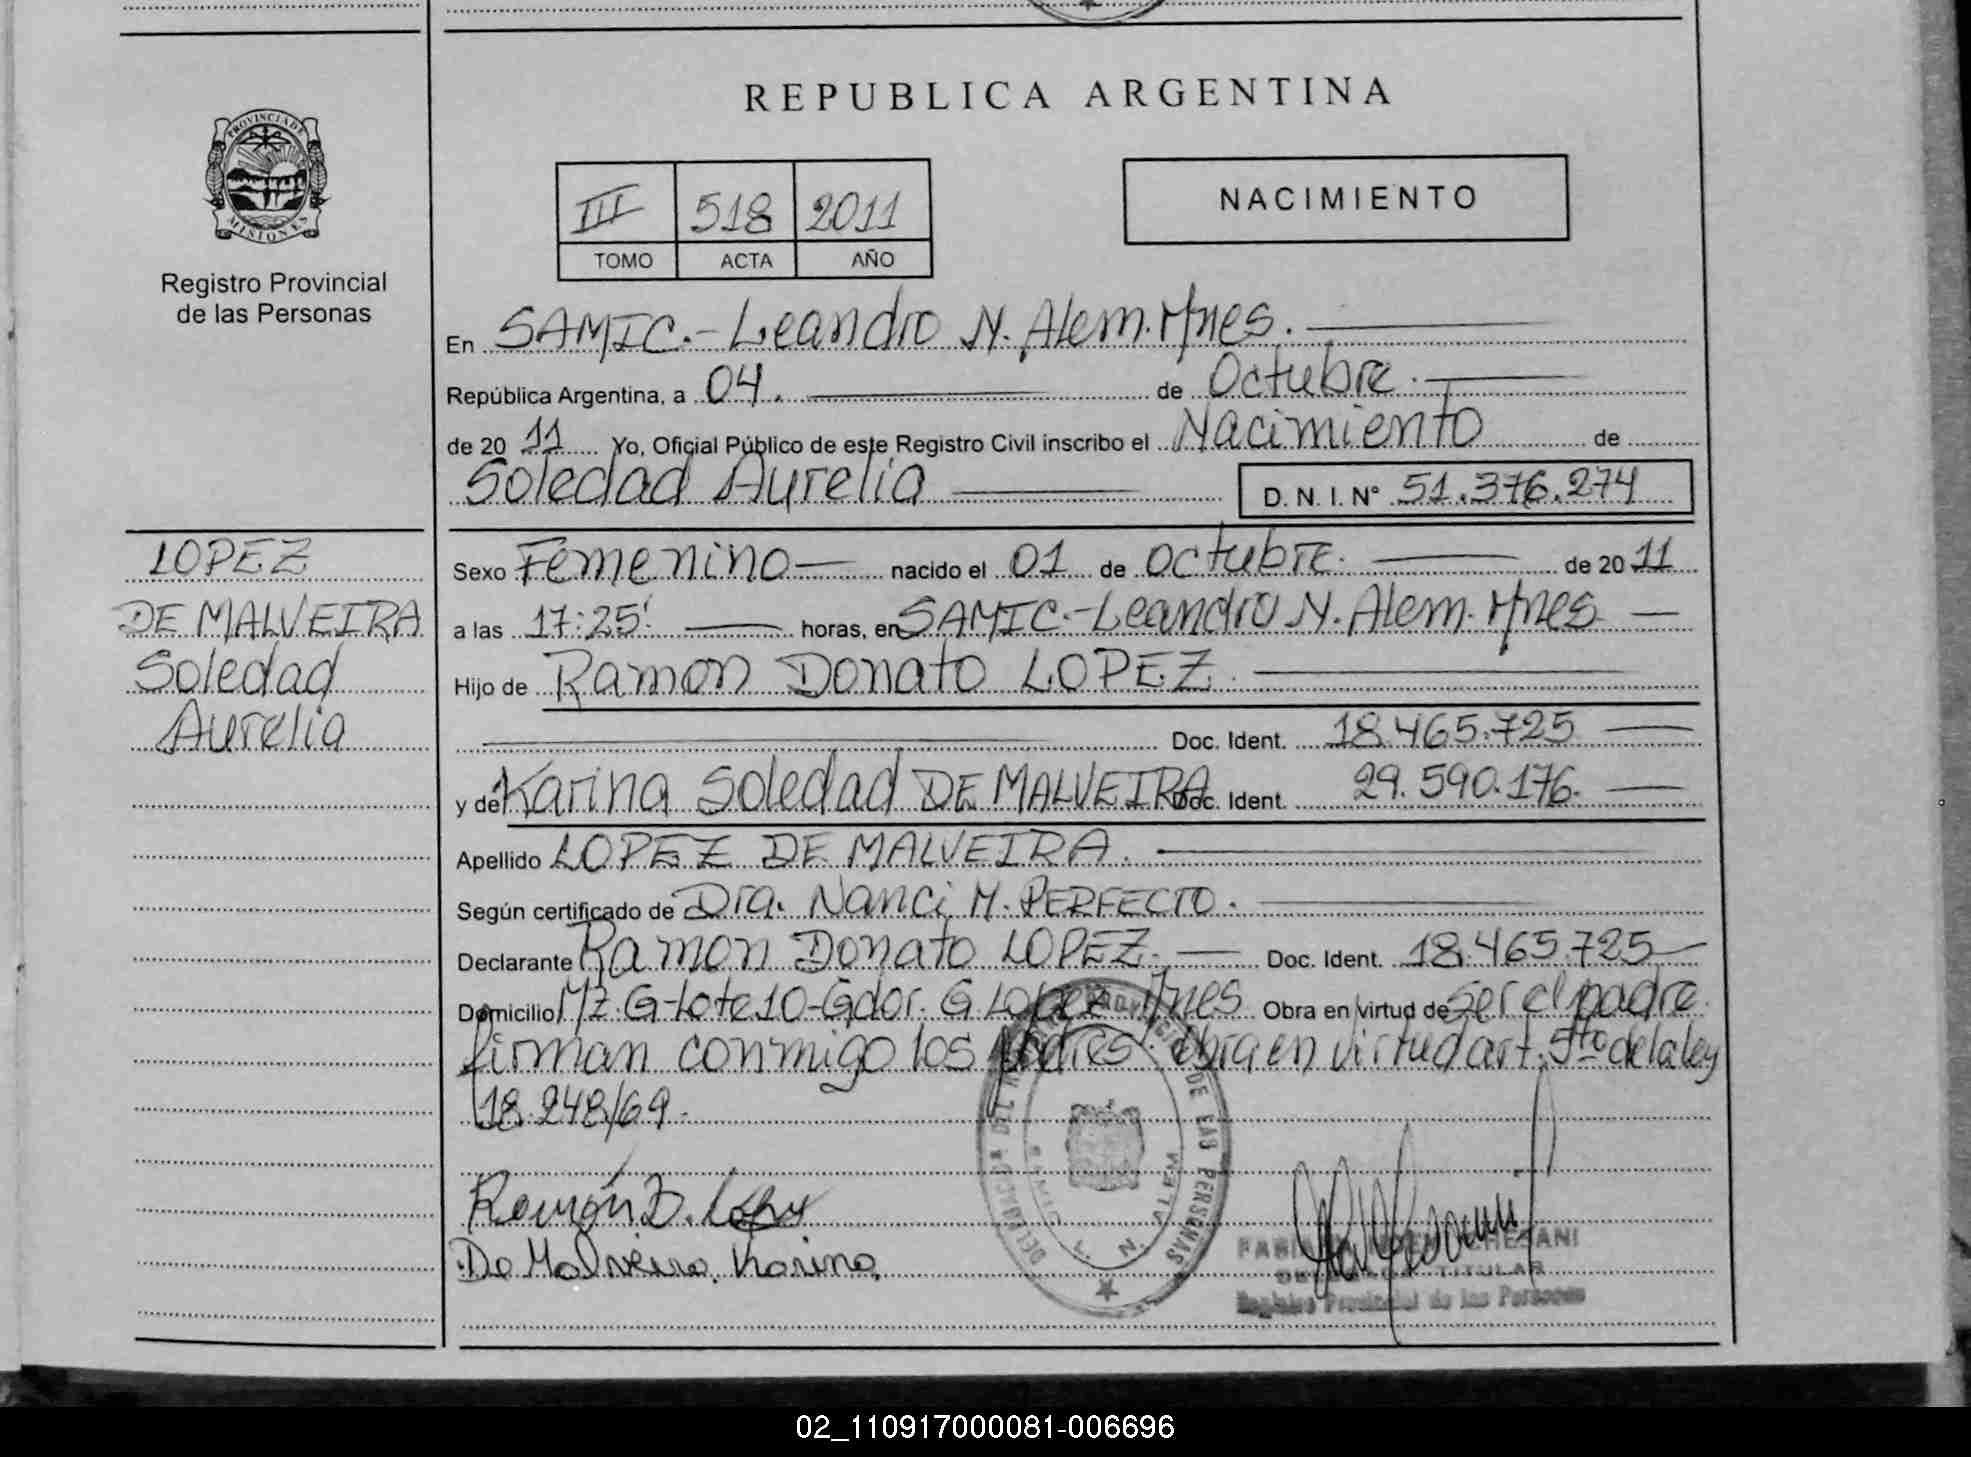 REPUBLICA ARGENTINA
PROVINCIA DE
MISIONES
Registro Provincial
de las Personas
III 518 2011
TOMO ACTA AÑO
NACIMIENTO
En SAMIC.- Leandro N. Alem. Mnes.
República Argentina, a 04. de Octubre.
de 20 11 Yo, Oficial Público de este Registro Civil inscribo el Nacimiento de
Soledad Aurelia D. N. I. N° 51.376.274
LOPEZ
DE MALVEIRA
Soledad
Aurelia
Sexo Femenino nacido el 01 de octubre. de 20 11
a las 17:25' horas, en SAMIC.-Leandro N. Alem. Mnes
Hijo de Ramon Donato LOPEZ.
Doc. Ident. 18.465.725
y de Karina Soledad DE MALVEIRA Doc. Ident. 29.590.176.
Apellido LOPEZ DE MALVEIRA.
Según certificado de Dra. Nanci M. PERFECTO.
Declarante Ramon Donato LOPEZ. Doc. Ident. 18.465.725
Domicilio Mz. G-Lote 10-Gdor. G. Lopez Mnes Obra en virtud de ser el padre.
firman conmigo los padres. Obra en virtud art. 5to de la ley
18.248/69.
Ramón D. López
De Malveira, Karina,
DE LAS PERSONAS
L. N. ALEM
TITULAR
Registro Provincial de las Personas
02_110917000081-006696